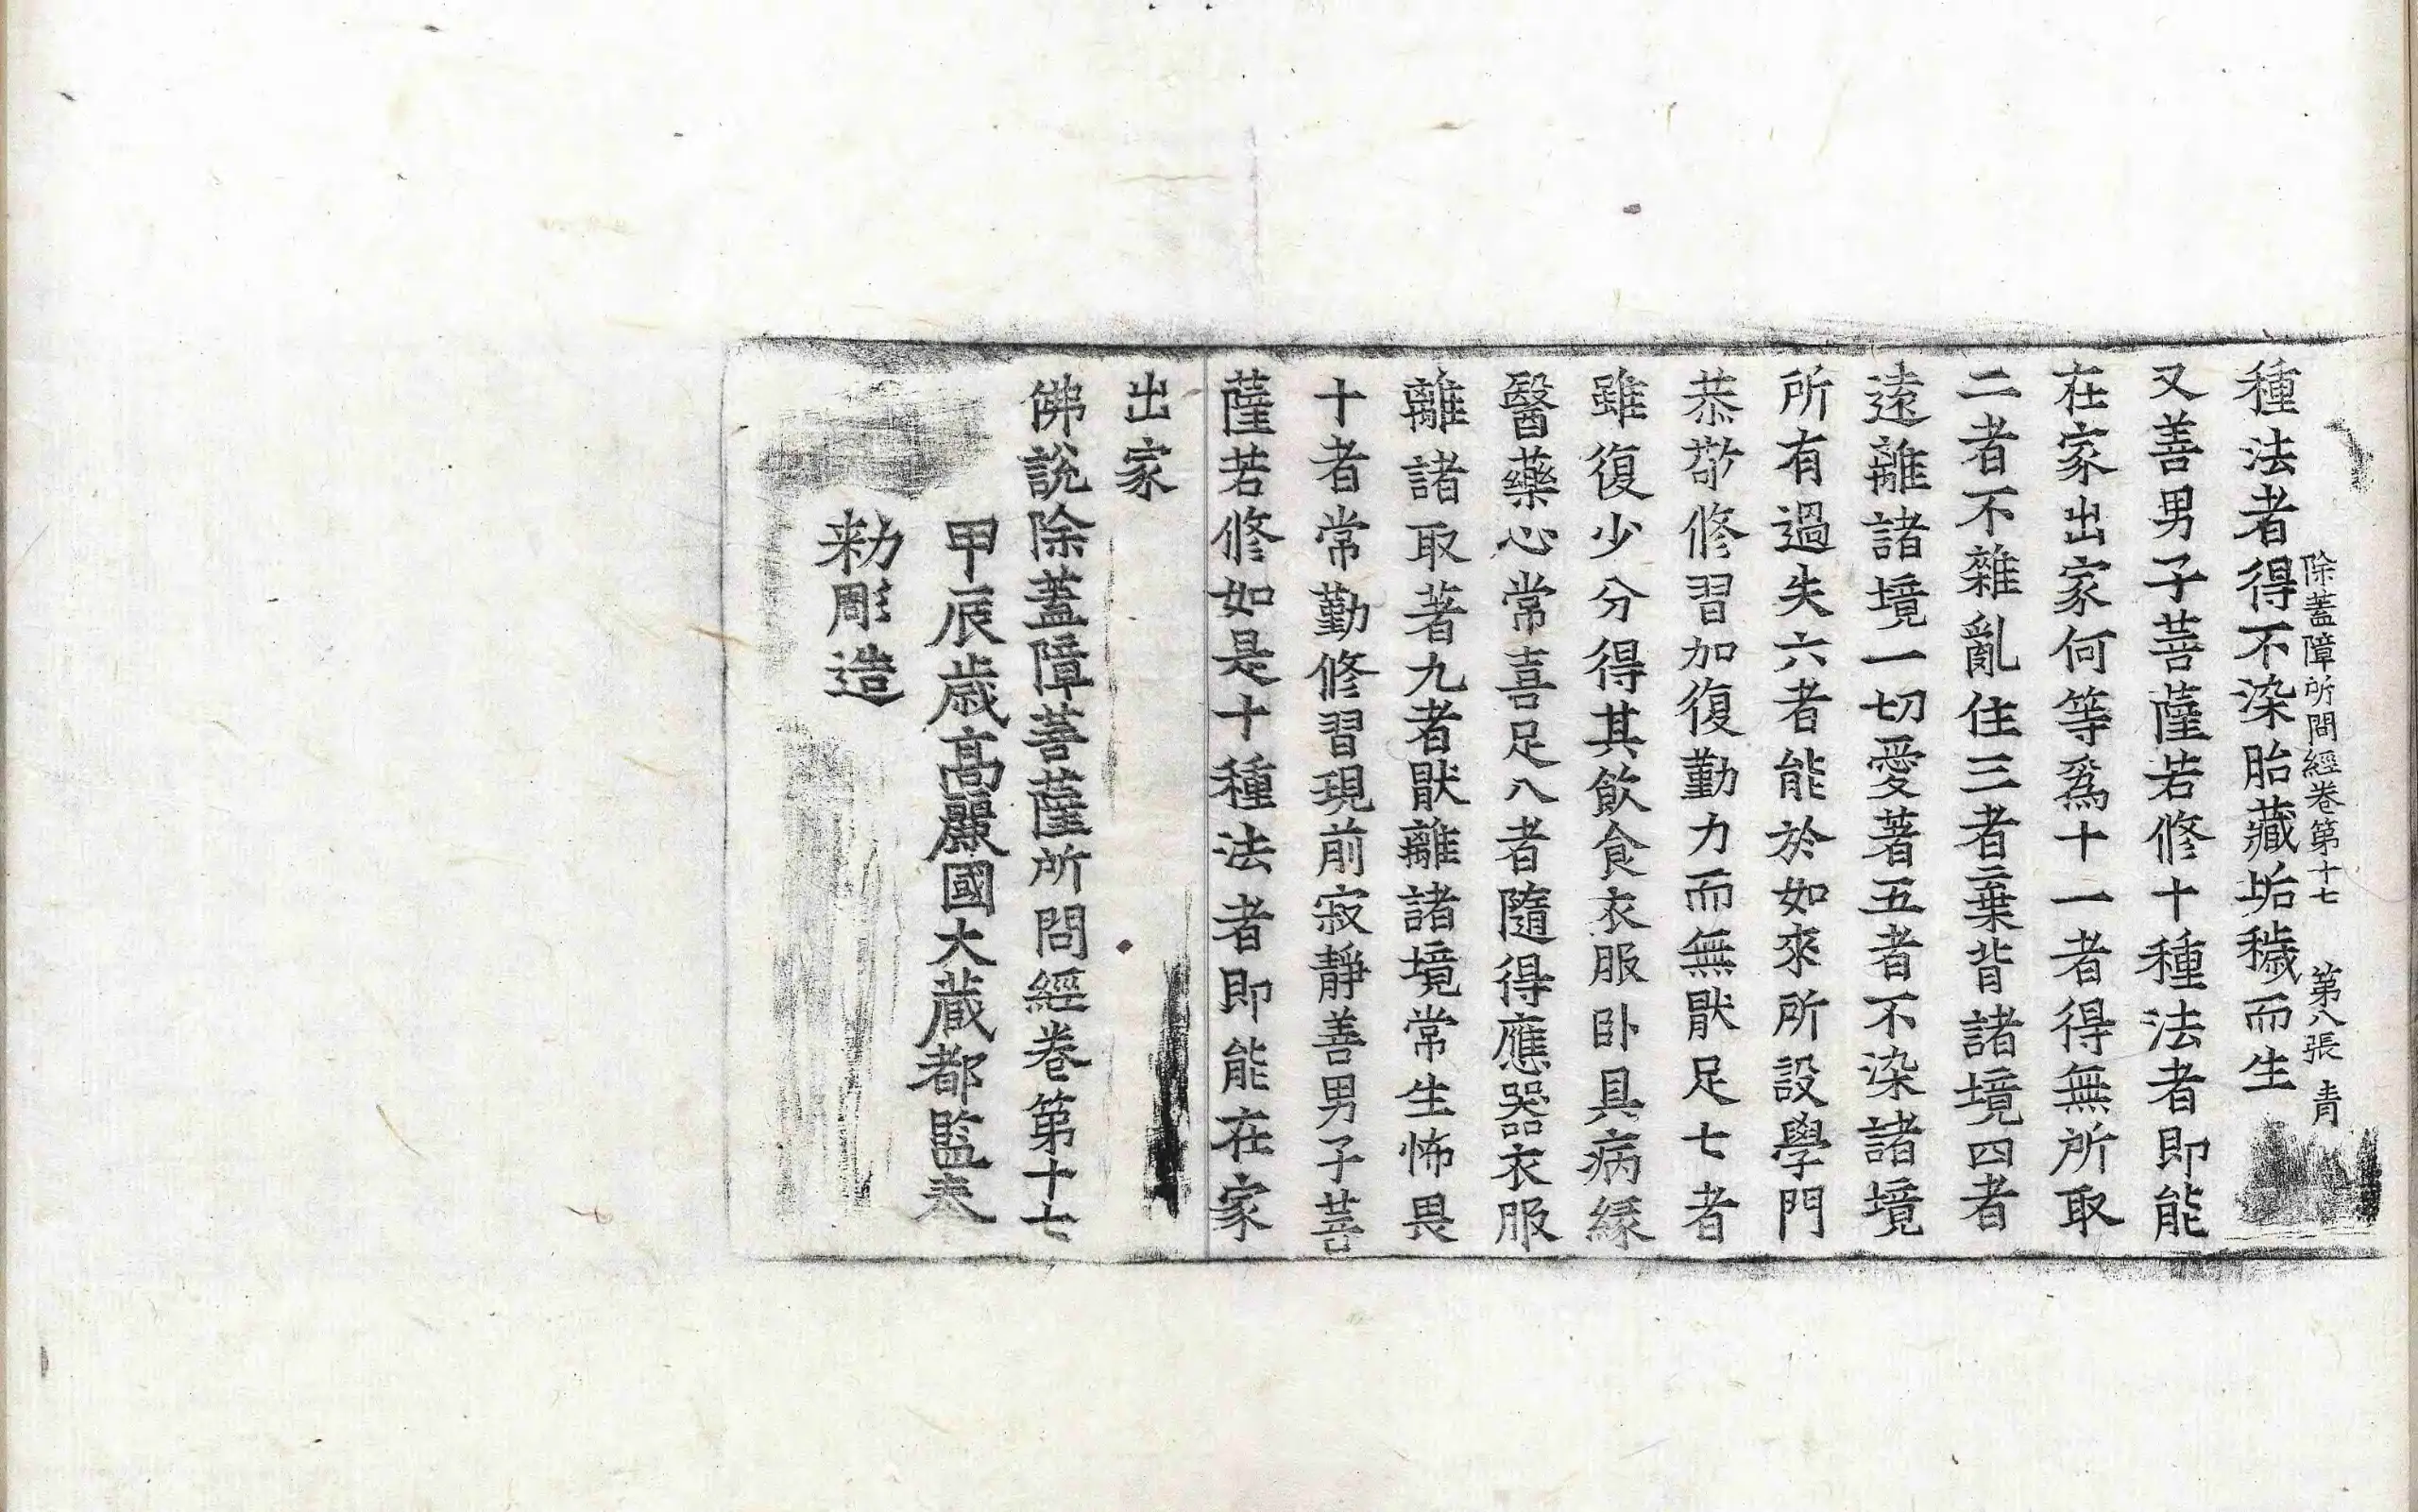 除蓋障所問經卷第十七 第八張 青
種法者得不染胎藏垢穢而生
又善男子菩薩若修十種法者即能
在家出家何等爲十一者得無所取
二者不雜亂住三者棄背諸境四者
遠離諸境一切愛著五者不染諸境
所有過失六者能於如來所設學門
恭敬修習加復勤力而無猒足七者
雖復少分得其飮食衣服卧具病緣
醫藥心常喜足八者隨得應器衣服
離諸取著九者猒離諸境常生怖畏
十者常勤修習現前寂靜善男子菩
薩若修如是十種法者即能在家
出家
佛說除蓋障菩薩所問經卷第十七
甲辰歲高麗國大藏都監奉
勅彫造